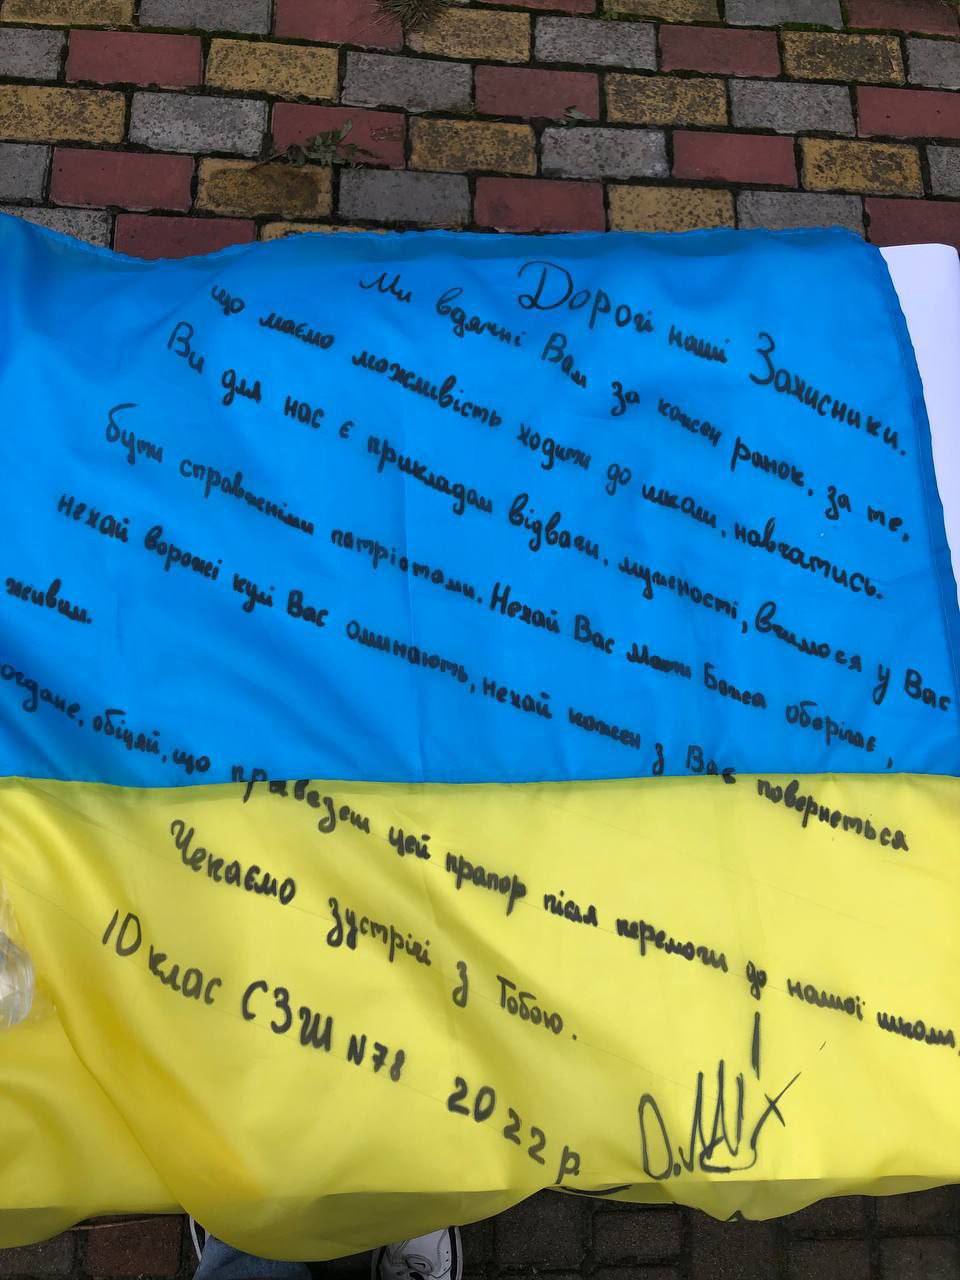 Дорогі наші Захисники.
Ми вдячні Вам за кожен ранок, за те,
що маємо можливість ходити до школи, навчатись.
Ви для нас є прикладом відваги, мужності, вчимося у Вас
бути справжніми патріотами. Нехай Вас Мати Божа оберігає,
нехай ворожі кулі Вас оминають, нехай кожен з Вас повернеться
живим.
обіцяй, що привезеш цей прапор після перемоги до нашої школи,
Чекаємо зустрічі з Тобою.
10 клас СЗШ N78 2022 р.